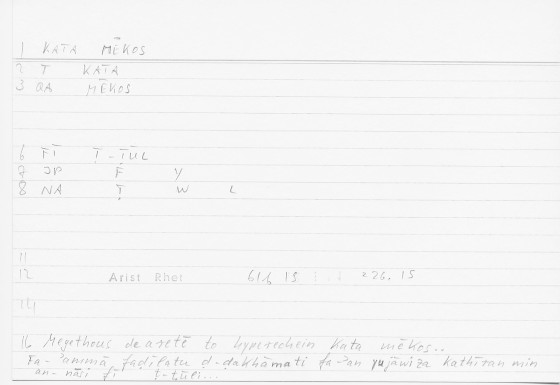 1 KATA MĒKOS
2 T KATA
3 QA MĒKOS
6 FĪ Ṭ-ṬŪL
7 JP F Y
8 NA Ṭ W L
11
12 Arist Rhet 61b 15 226.15
14
16 Megethous de aretē to hyperechein kata mēkos..
Fa-'ammā faḍīlatu ḍ-ḍakhāmati fa-'an yujāwiza kathīran min
an-nāsi fī ṭ-ṭūli...